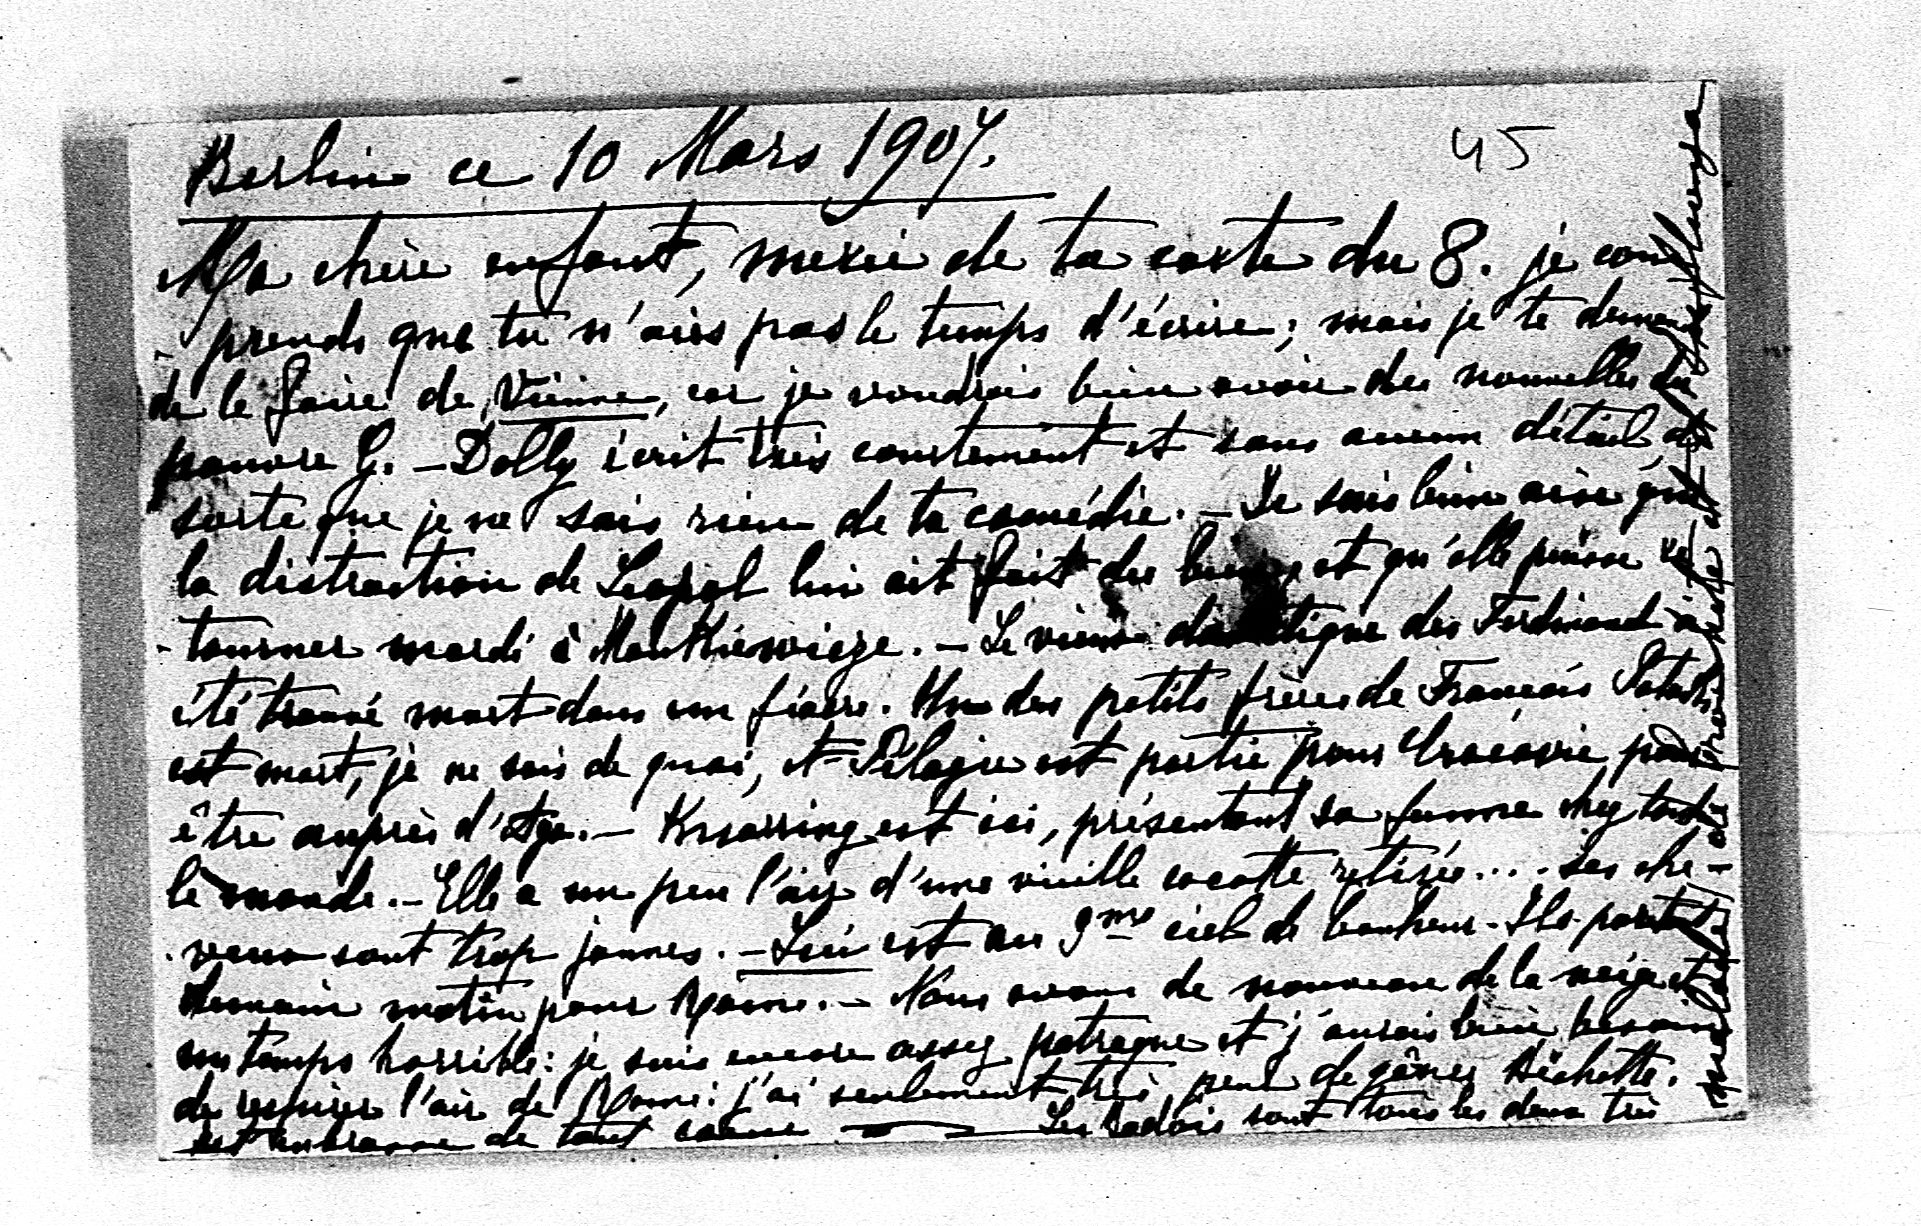 Berlin ce 10 Mars 1907.
45
Ma chère enfant, merci de ta carte du 8. je com
- prends que tu n'aies pas le temps d'écrire; mais je te deman
de le faire de Vienne, car je voudrais bien avoir des nouvelles du
pauvre G. — Dolly écrit très courtement et sans aucun détail, de
sorte que je ne sais rien de ta comédie. — Je suis bien aise que
la distraction de Léopol lui ait fait du bien, et qu'elle puisse re
- tourner mardi à — Le vieux des Ferdinand a
été trouvé mort dans un fiacre. Un des petits frères de François Potocki
est mort, je ne sais de quoi, et Pélagie est partie pour Cracovie pour
être auprès d' — Knorring est ici, présentant sa femme chez tout
le monde. — Elle a un peu l'air d'une vieille cocotte retirée... ses che -
- veux sont trop jaunes. — Lui est au 9me ciel de bonheur - Ils partent
demain matin pour Rome. — Nous avons de nouveau de la neige et
un temps horrible: je suis encore assez patraque et j'aurais bien besoin
de respirer l'air de Rome: j'ai seulement très peur de gêner Bichette.
et t'embrasse de tout coeur — Les Radolin sont tous les deux très
malades, et influenza